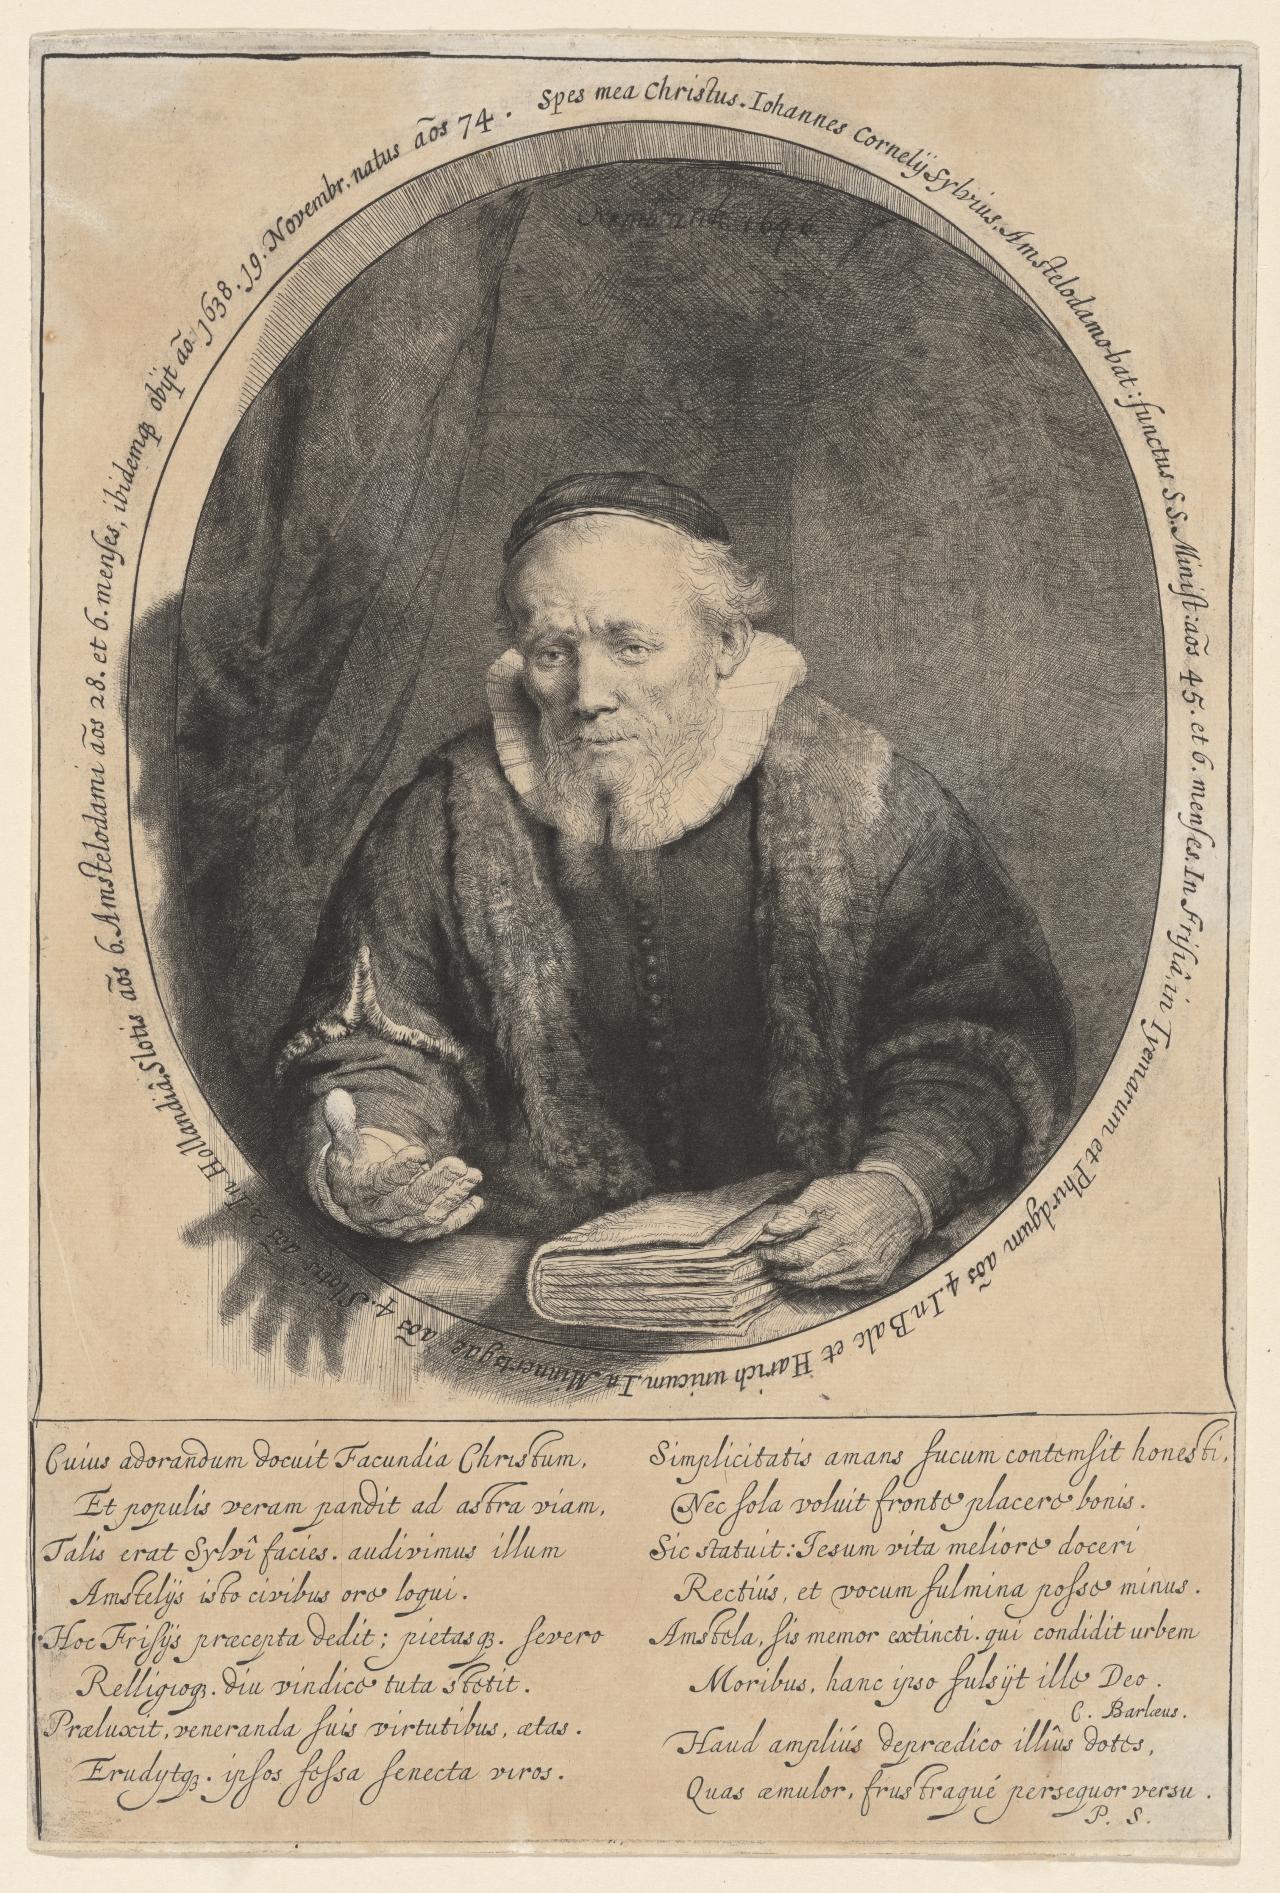 Spes mea Christus. Iohannes Cornelÿ Sylvius, Amstelodamobat: functus S.S. Minist: aõs 45. et 6. menses. In Frisiâ, in Tyemarum et Phirdgum aõs 4. In Balc et Harich unicum. In Minnertsgae aõs 4. Slotis aõs 2. In Hollandiâ, Slotis aõs 6. Amstelodami aõs 28. et 6. menses, ibidemqꝫ obÿt aõ. 1638. 19. Novembr. natus aõs 74.
Rembrandt 1646
Cuius adorandum docuit Facundia Christum,
Et populis veram pandit ad astra viam,
Talis erat Sylvî facies. audivimus illum
Amstelÿs isto civibus ore loqui.
Hoc Frisÿs præcepta dedit; pietasqꝫ. severo
Relligioqꝫ. diu vindice tuta stetit.
Præluxit, veneranda suis virtutibus, ætas.
Erudytqꝫ. ipsos fessa senecta viros.
Simplicitatis amans fucum contemsit honesti,
Nec sola voluit fronte placere bonis.
Sic statuit: Iesum vita meliore doceri
Rectiús, et vocum fulmina posse minus.
Amstela, sis memor extincti. qui condidit urbem
Moribus, hanc ipso fulsÿt ille Deo.
C. Barlæus.
Haud ampliús deprædico illîus dotes,
Quas æmulor, frustraqué persequor versu.
P. S.